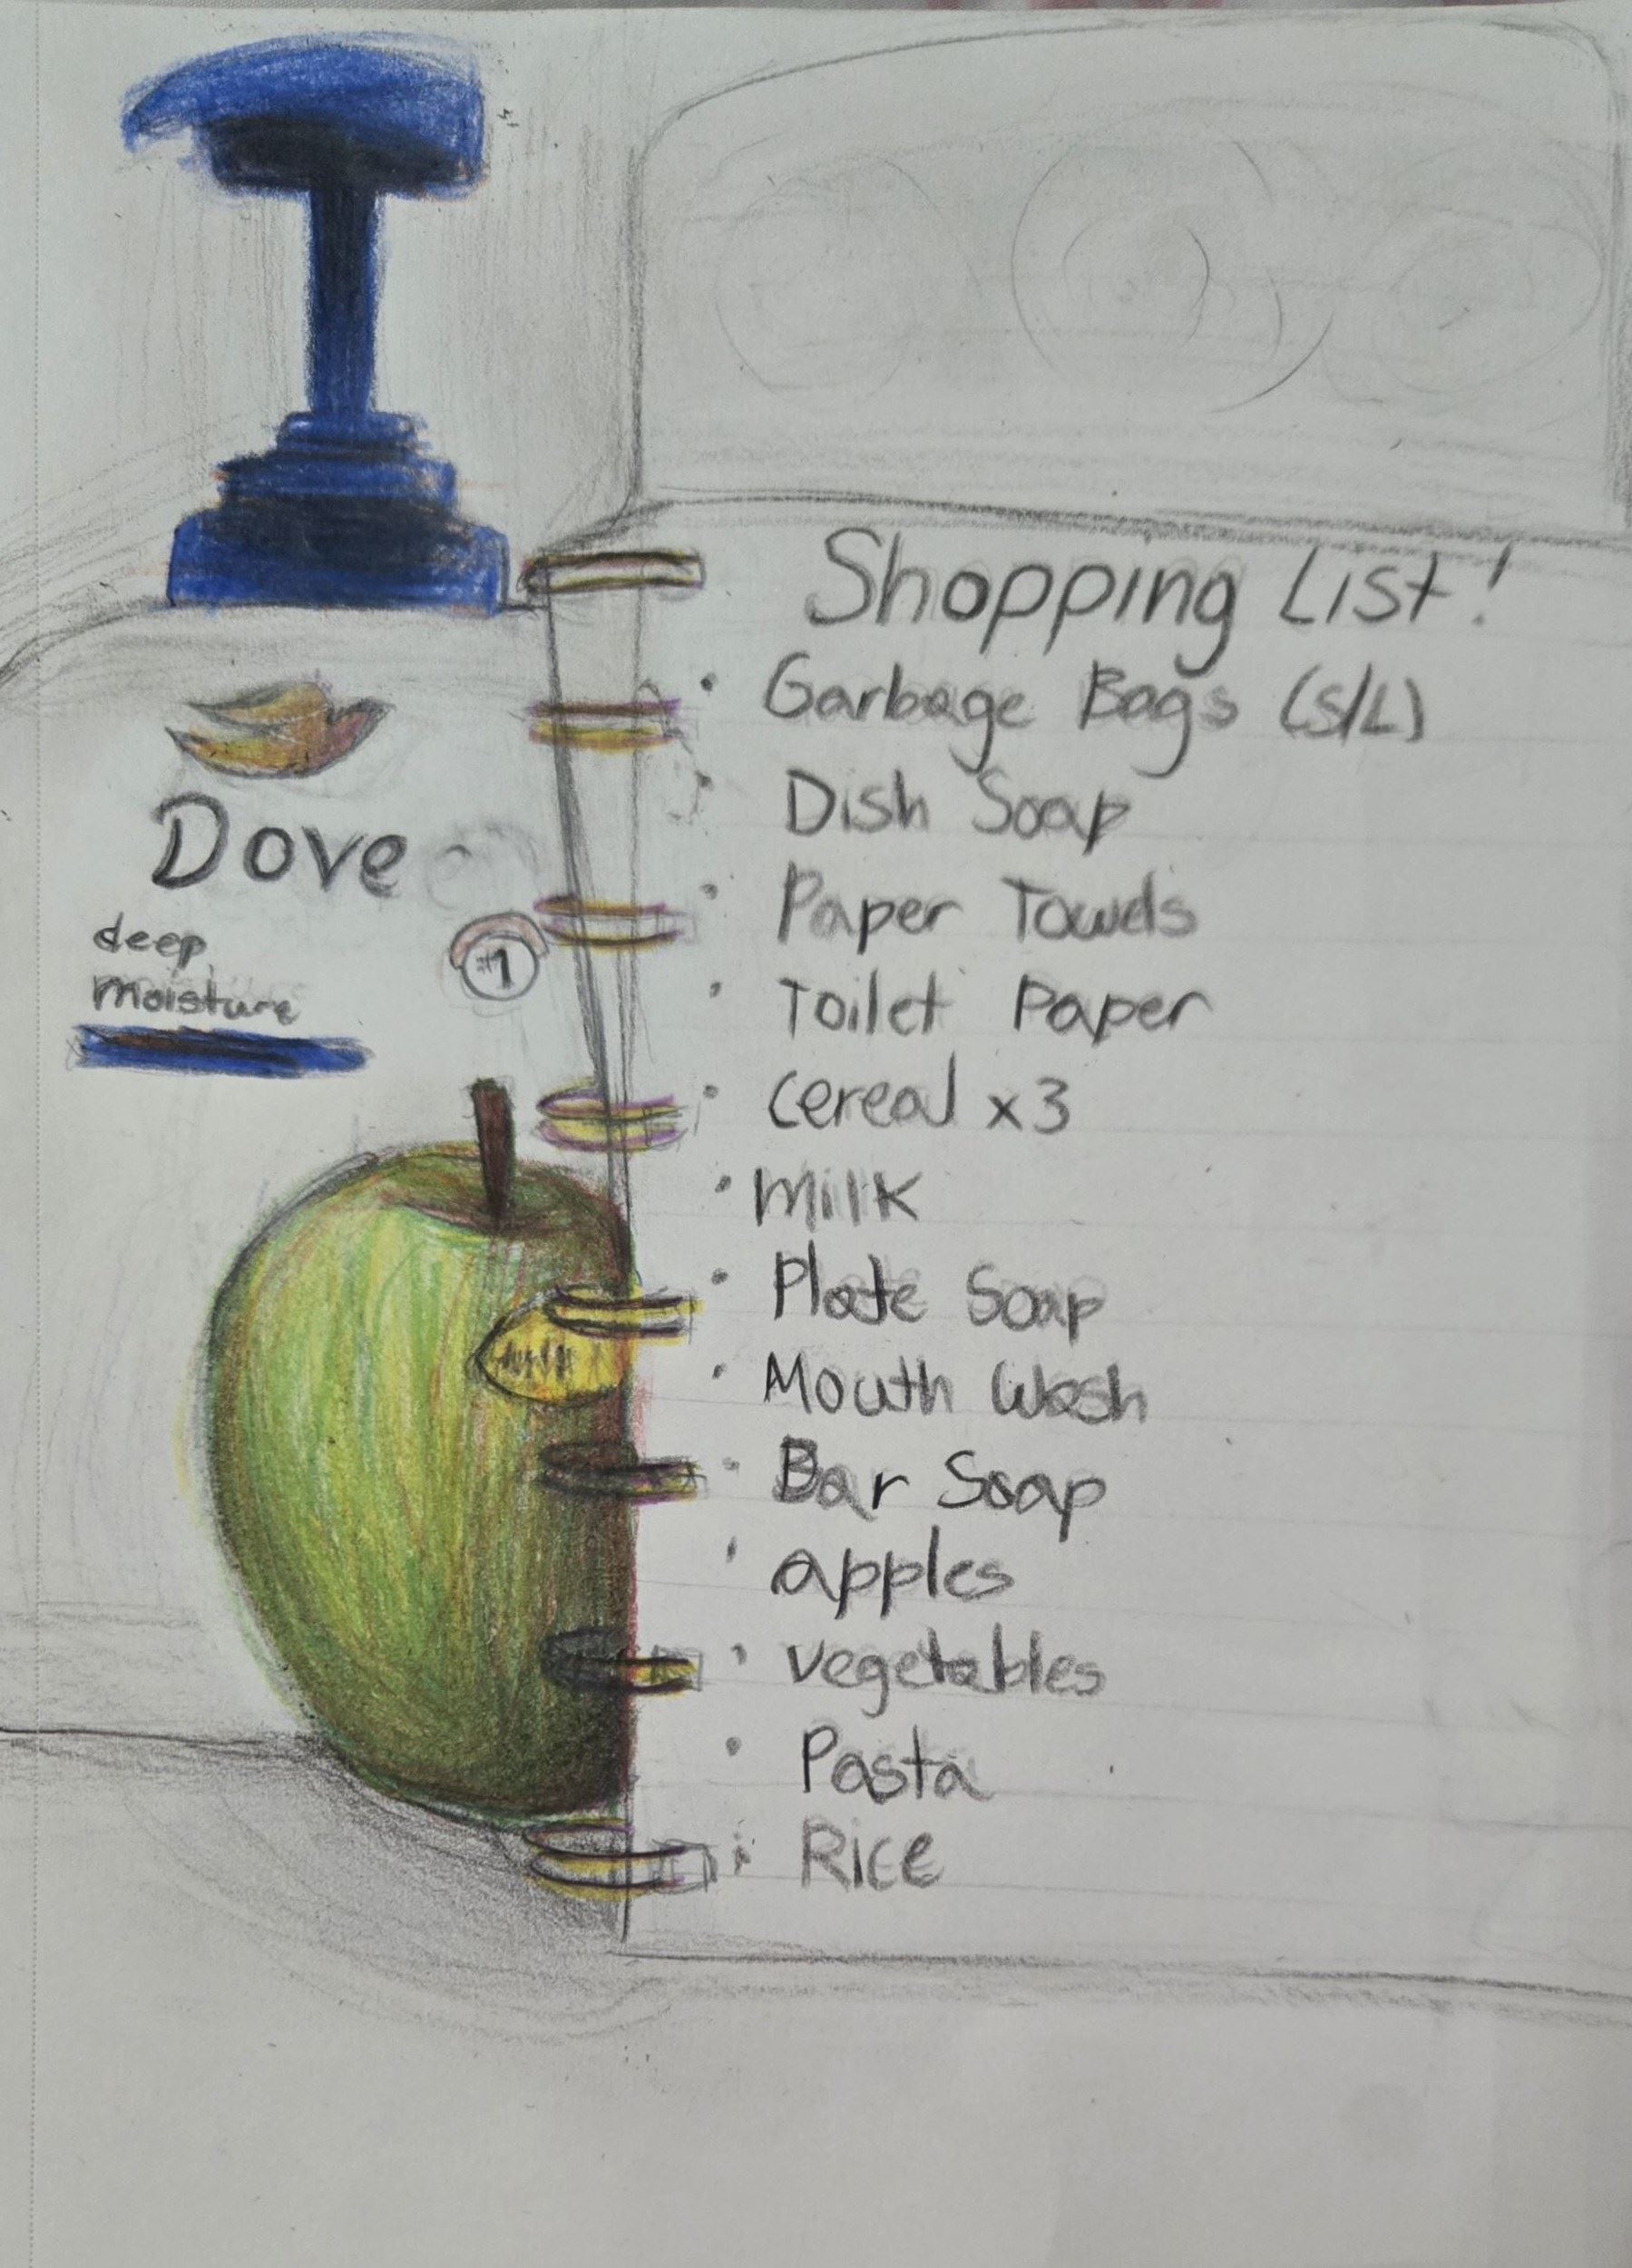 Shopping List!
· Garbage Bags (S/L)
· Dish Soap
· Paper Towels
· Toilet Paper
· cereal x3
· milk
· Plate Soap
· Mouth Wash
· Bar Soap
· apples
· vegetables
· Pasta
· Rice
Dove
deep
moisture
#1